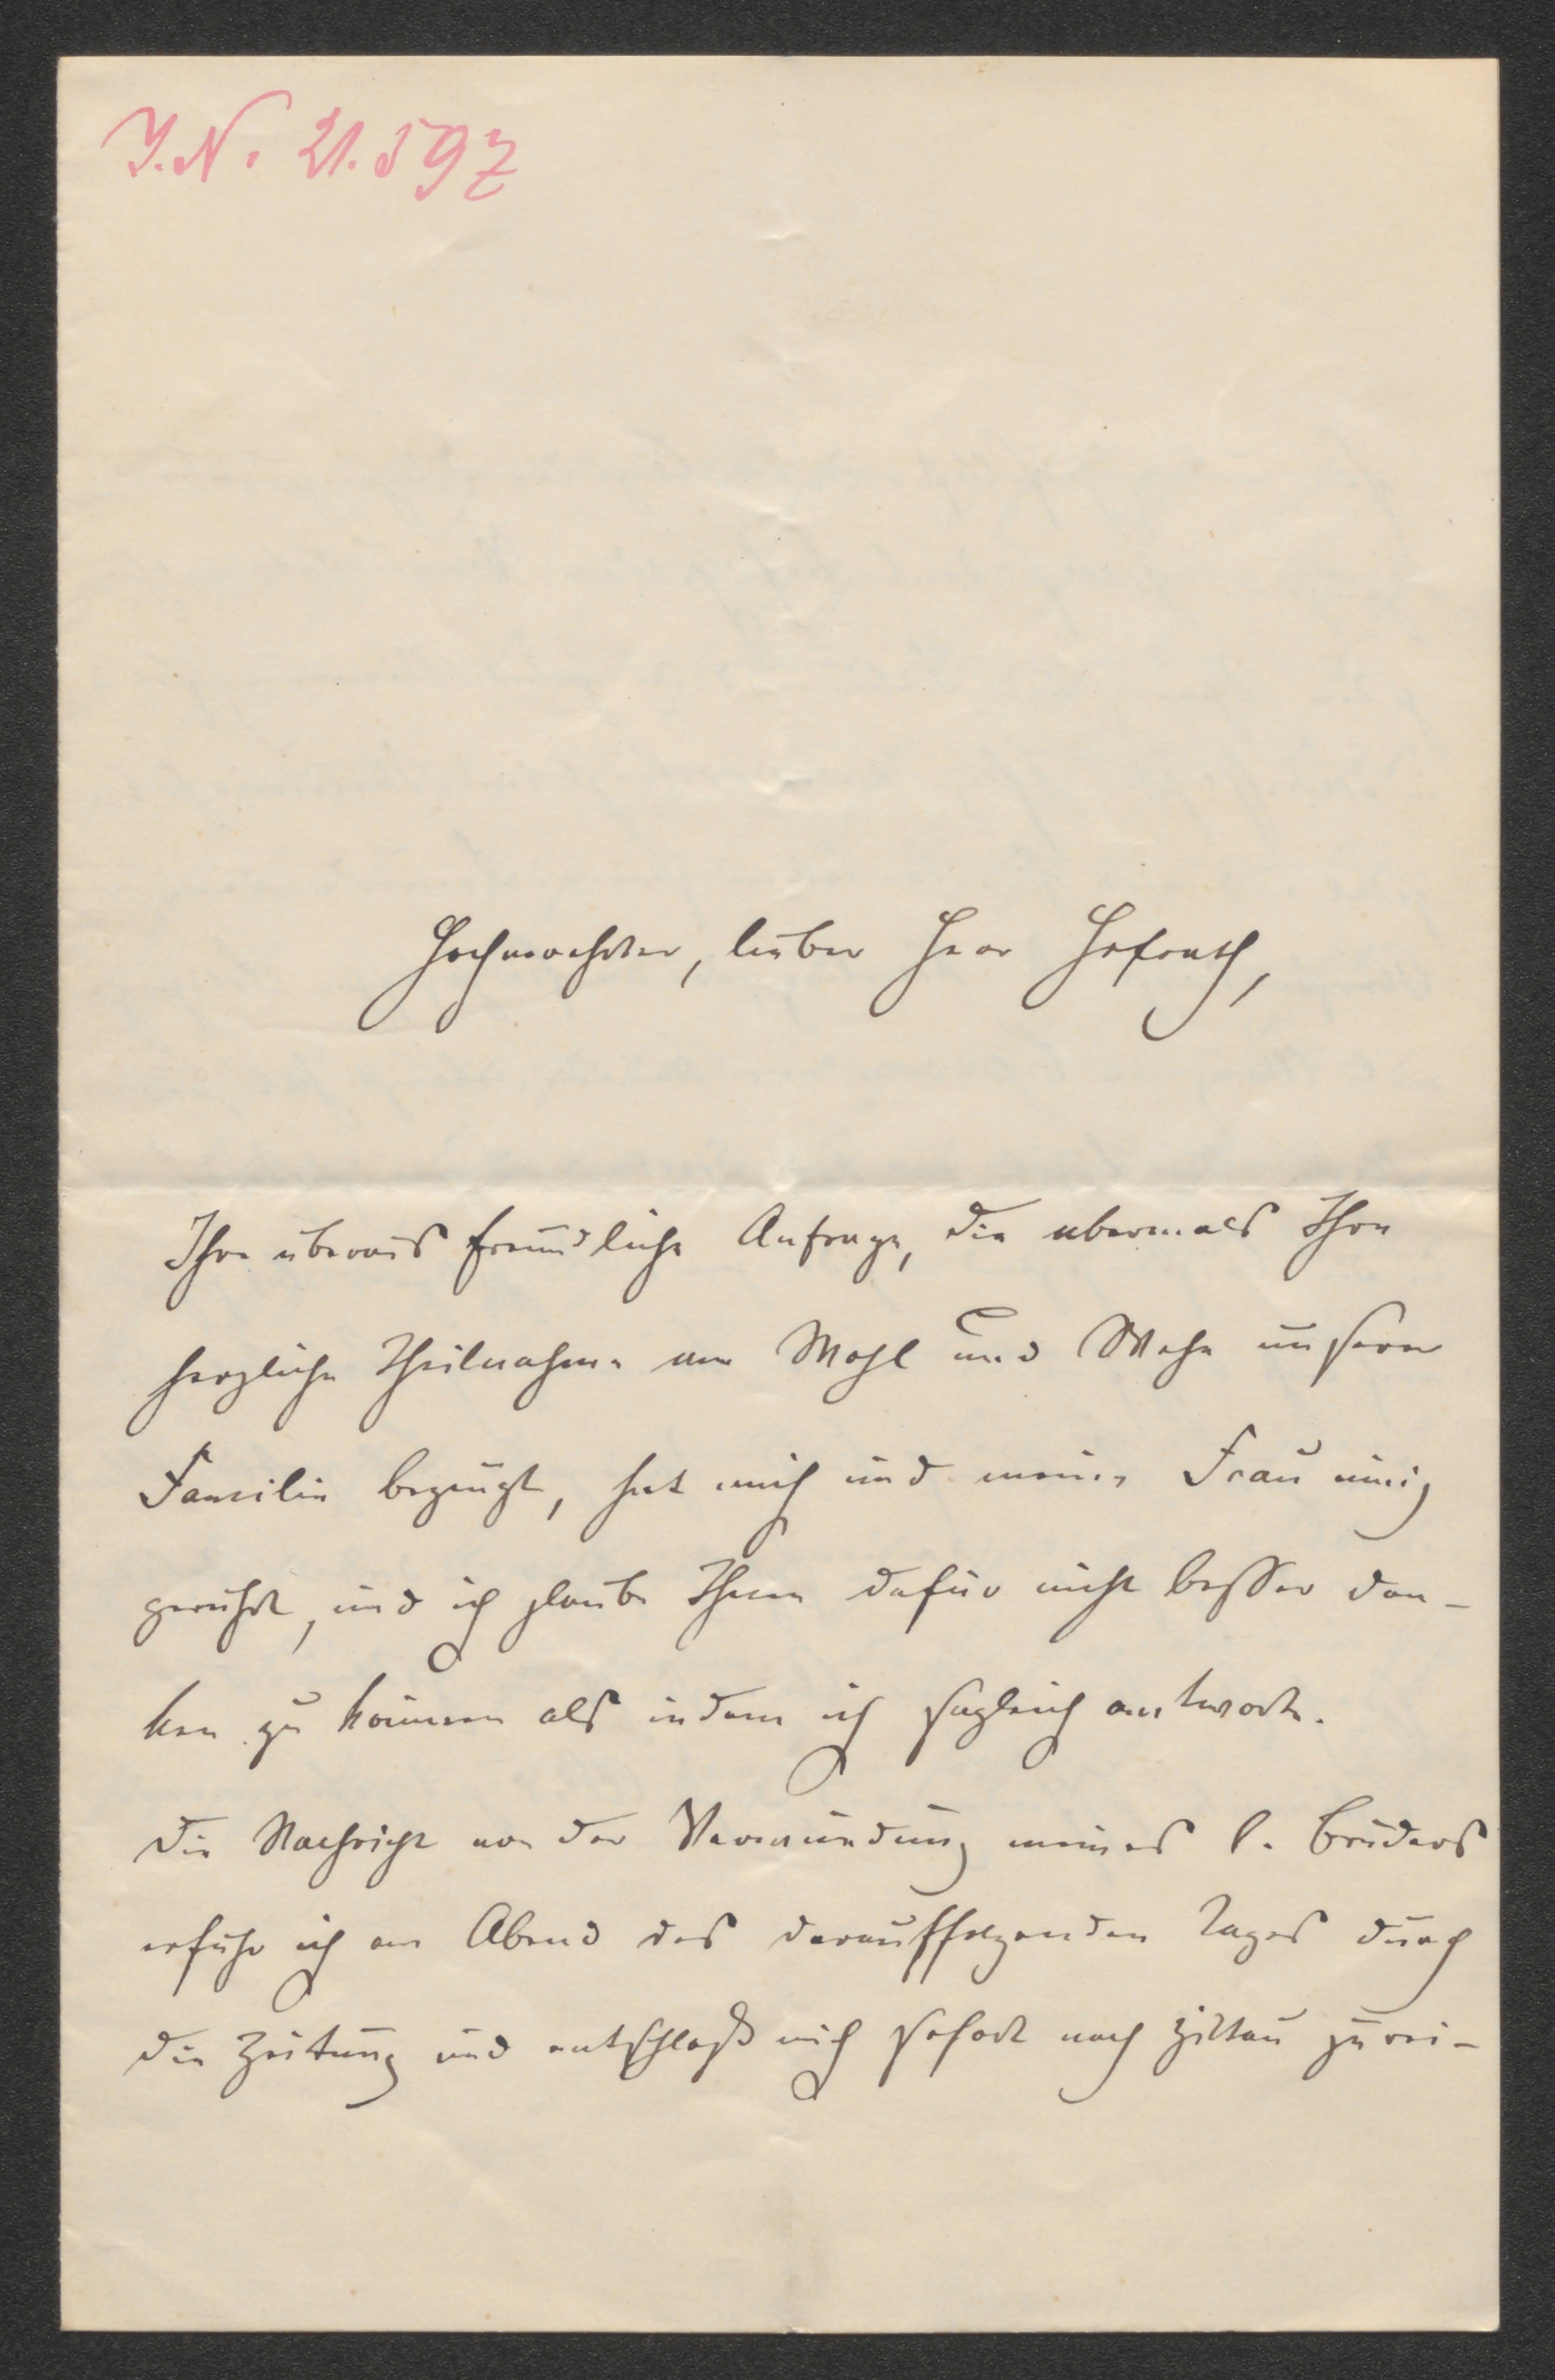 J.N. 21.597
Hochverehrter, lieber Herr Hofrath,
Ihre überaus freundliche Anfrage, die abermals Ihre
herzliche Theilnahme am Wohl und Wehe unserer
Familie bezeugt, hat mich und meine Frau innig
gerührt, und ich glaube Ihnen dafür nicht besser dan-
ken zu können als indem ich sogleich antworte.
Die Nachricht von der Verwundung meines l. Bruders
erfuhr ich am Abend des darauffolgenden Tages durch
die Zeitung und entschloß mich sofort nach Zittau zu rei-